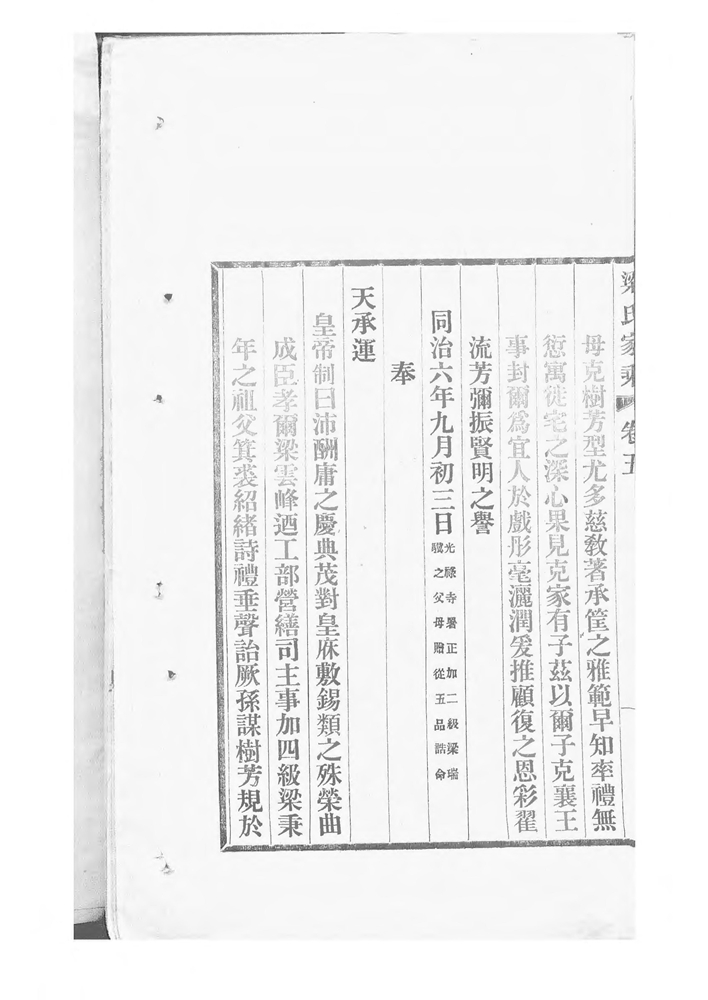 梁氏家乘 卷五
母克樹芳型尤多慈敎著承筐之雅範早知率禮無
愆寓徙宅之深心果見克家有子茲以爾子克襄王
事封爾爲宜人於戲彤毫灑潤爰推顧復之恩彩翟
流芳彌振賢明之譽
同治六年九月初三日
光祿寺署正加二級梁瑞
之父母贈從五品誥命
奉
天承運
皇帝制曰沛酬庸之慶典茂對皇庥敷錫類之殊榮曲
成臣孝爾梁雲峰迺工部營繕司主事加四級梁秉
年之祖父箕裘紹緒詩禮垂聲詒厥孫謀樹芳規於